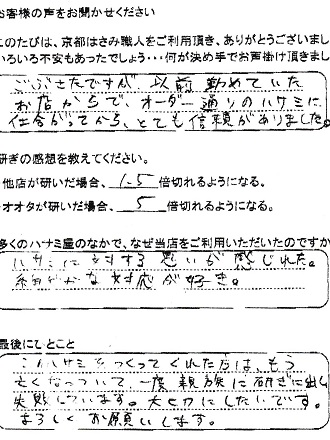 お客様の声をお聞かせください
このたびは、京都はさみ職人をご利用頂き、ありがとうございまし
いろいろ不安もあったでしょう…何が決め手でお声掛け頂きまし
ごぶさたですが、以前勤めていた
お店からで、オーダー通りのハサミに
仕合がってから、とても信頼がありました。
研ぎの感想を教えてください。
他店が研いだ場合、1.5倍切れるようになる。
オオタが研いだ場合、5倍切れるようになる。
多くのハサミ屋のなかで、なぜ当店をご利用いただいたのですか
ハサミに対する思いが感じれた。
細やかな対応が好き。
最後にひとこと
ハサミをつくってくれた方は、もう
亡くなっていて、一度親族に研ぎに出し
失敗しています。大切にしたいです。
よろしくお願いします。